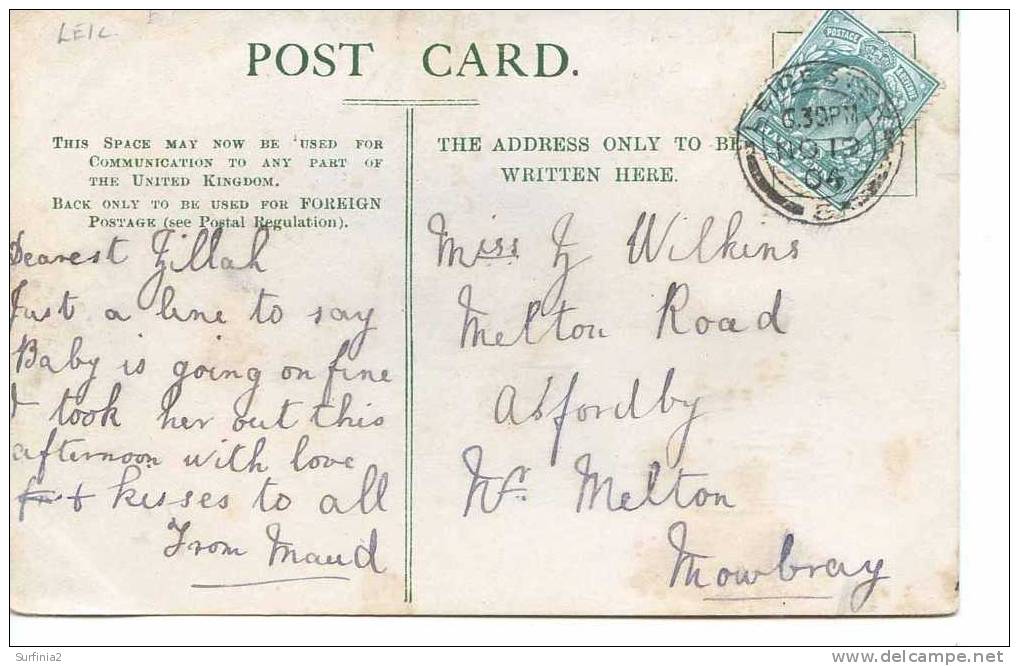 LEIC
POST CARD.
THIS SPACE MAY NOW BE USED FOR
COMMUNICATION TO ANY PART OF
THE UNITED KINGDOM.
BACK ONLY TO BE USED FOR FOREIGN
POSTAGE (see Postal Regulation).
Dearest Zillah
Just a line to say
Baby is going on fine
I took her out this
afternoon with love
+ kisses to all
From Maud
THE ADDRESS ONLY TO BE
WRITTEN HERE.
Miss Z Wilkins
Melton Road
Asfordby
Nr. Melton
Mowbray
POSTAGE
LEICESTER
6.30PM
NO 13
Surfinia2
www.delcampe.net